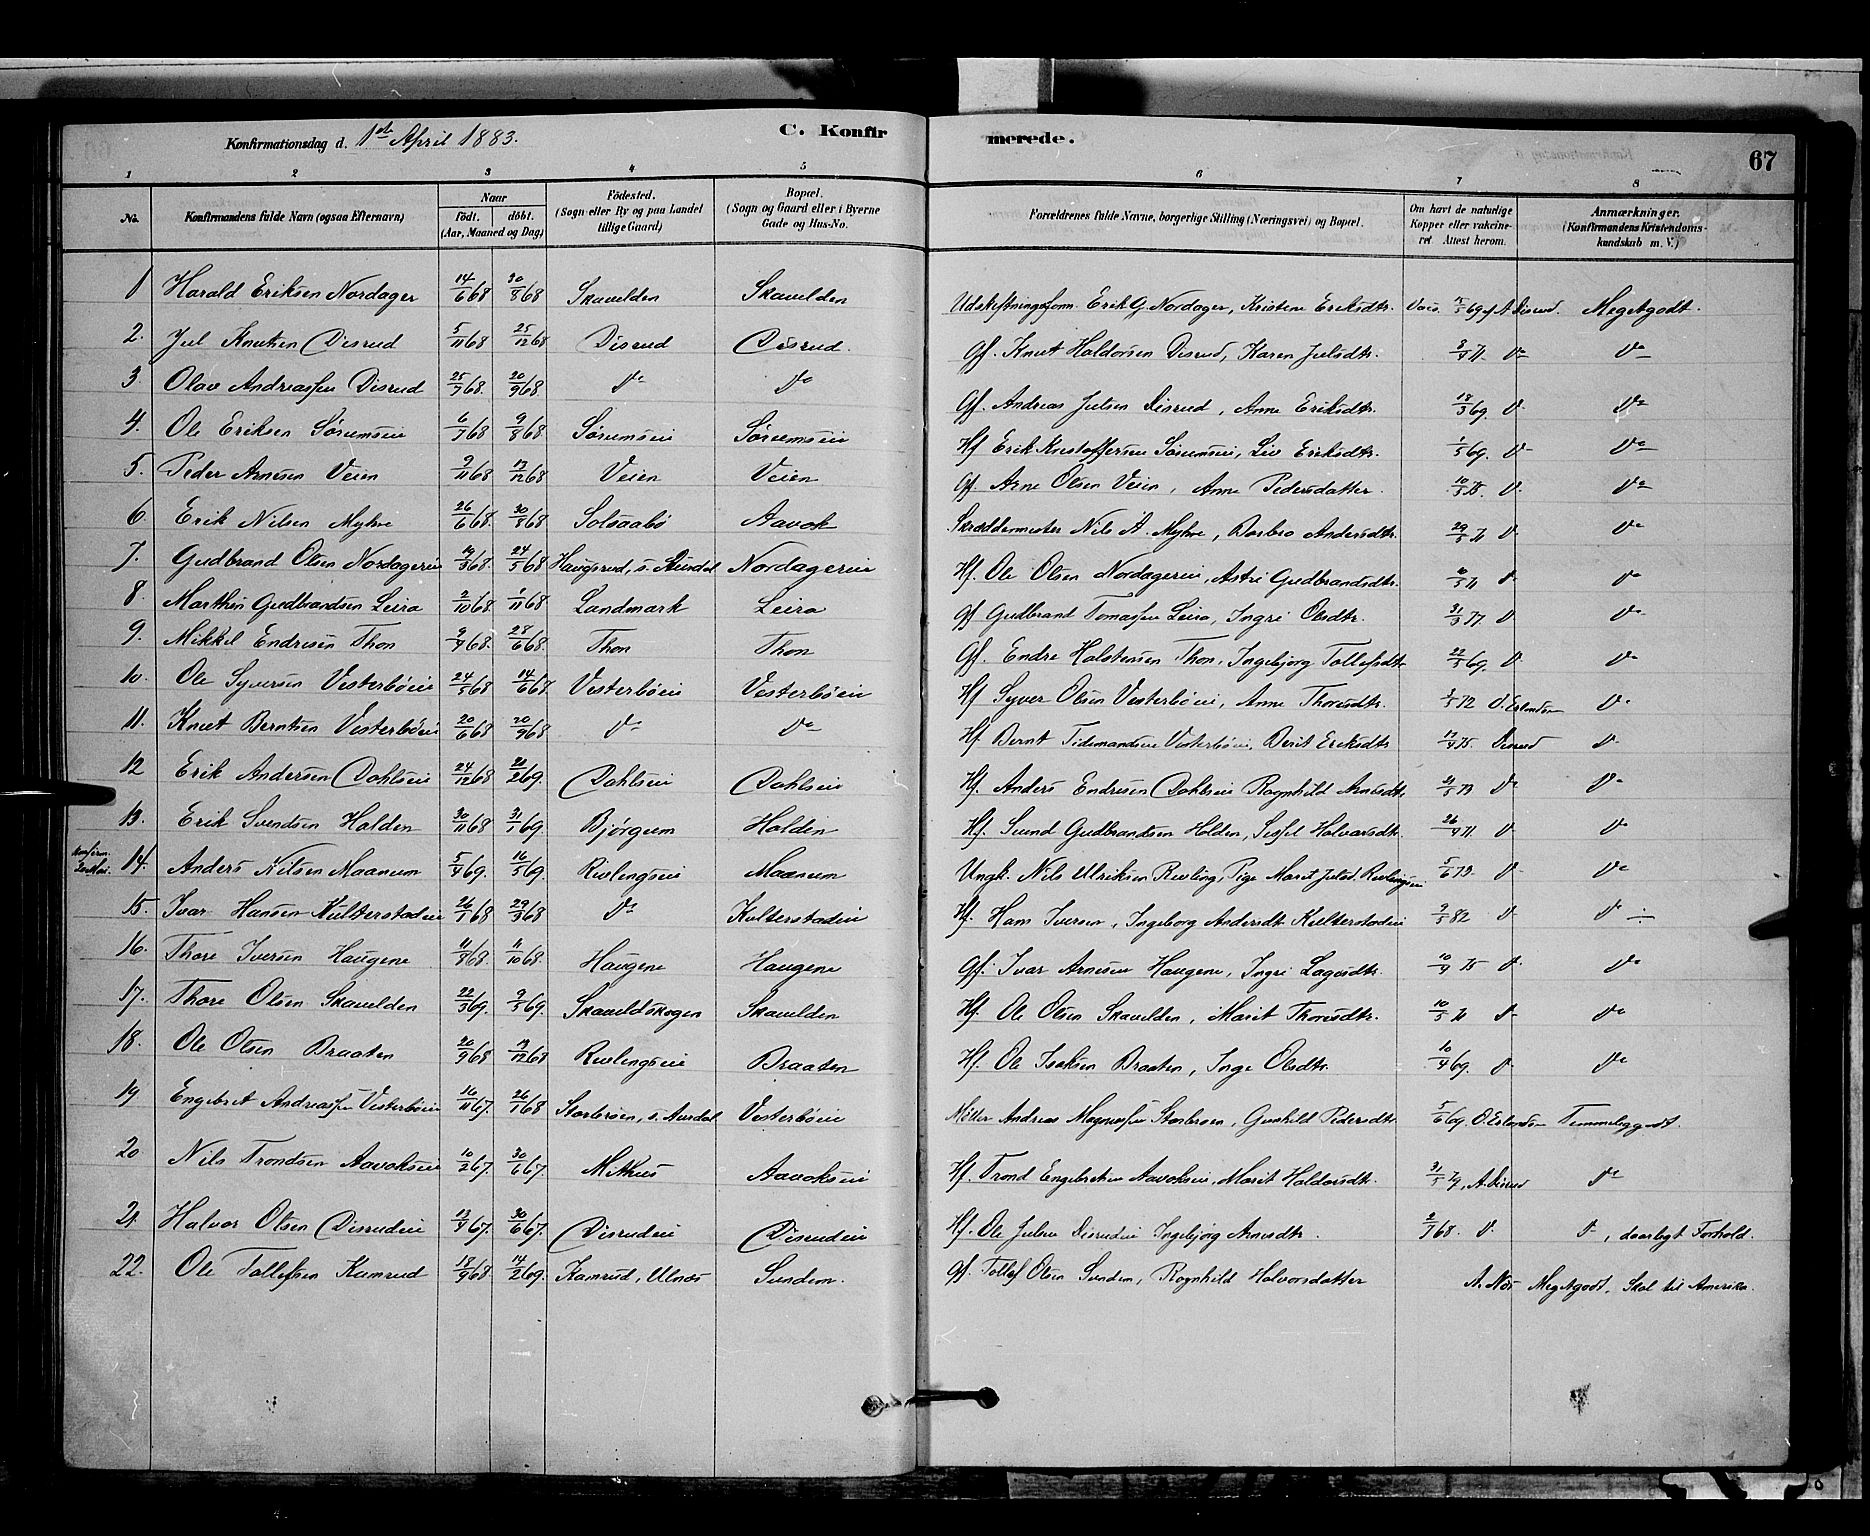 Konfirmationsdag d. 1st April 1883.
C. Konfirmerede.
67
1 2 3 4 5 6 7 8
No.
Konfirmandens fulde Navn (ogsaa Efternavn)
Naar
födt. döbt.
(Aar, Maaned og Dag)
Födested.
(Sogn eller By og paa Landet
tillige Gaard)
Bopæl.
(Sogn og Gaard eller i Byerne
Gade og Hus-No.
Forældrenes fulde Navne, borgerlige Stilling (Næringsvei) og Bopæl.
Om havt de naturlige
Kopper eller vakcine-
ret Attest herom.
Anmærkninger.
(Konfirmandens Kristendoms-
kundskab m. V.)
1 Harald Eriksen Nordager 14/6 68 30/8 68 Skavelden Skavelden Udskiftningsform. Erik G. Nordager, Kristine Eriksdtr. Vacc. 69 af A Disrud. Meget godt.
2. Jul Knutsen Disrud 5/11 68 25/12 68 Disrud Disrud. Gf. Knut Haldorsen Disrud, Karen Julsdtr. Do Do
3. Olav Andreassen Disrud 25/7 68. 20/9 68 Do Do Gf. Andreas Julsen Disrud, Anne Eriksdtr. 18/3 69. Do Do
4. Ole Eriksen Sörumseie 6/7 68 9/8 68 Sörumseie Sörumseie Hf Erik Kristoffersen Sörumseie, Liv Eriksdtr. 1/5 69. Do Do
5. Peder Arnesen Veien 9/11 68 13/12 68 Veien Veien Gf. Arne Olsen Veien, Anne Pedersdatter. Do Do
6. Erik Nilsen Myhre 26/6 68. 30/8 68 Solsaabö Aavok Skræddermester Nils A. Myhre, Barbro Andersdtr. Do Do
7. Gudbrand Olsen Nordagerie 19/3 68. 24/5 68 Haugsrud, s. Aurdal Nordagerie Hf. Ole Olsen Nordagerie, Astri Gudbrandsdtr. Do Do
8. Marthin Gudbrandsen Leira 2/10 68 1/11 68 Landmark Leira Gf Gudbrand Tomassen Leira, Ingri Olsdtr. Do Do
9. Mikkel Endresen Thon 68. 28/6 68. Thon Thon Gf. Endre Halstensen Thon, Ingebjorg Tollefsdtr 22/5 69 Do Do
10. Ole Syversen Vesterböeie 24/5 68 14/6 68 Vesterböeie Vesterböeie Hf Syver Olsen Vesterböeie, Anne Thoresdtr. 72 O. Eslondsen Do
11. Knut Berntsen Vesterböeie 20/6 68 20/9 68 Do Do Hf Bernt Tidemandsen Vesterböeie, Berit Eriksdtr 75. Disrud Do
12 Erik Andersen Dahlseie 24/12 68 21/2 69. Dahlseie Dahlseie Hf. Anders Endresen Dahlseie Ragnhild Arnesdtr. Do Do
13. Erik Svendsen Holden 30/11 68 31/1 69. Björgum Holden Hf. Svend Gudbrandsen Holden, Sissel Halvarsdtr. 26/4 71 Do Do
14. Anders Nilsen Maanum 5/4 69. 16/5 69. Rivlingseie Maanum Ungk. Nils Ulriksen Revling, Pige Marit Julsd. Revlingseie Do Do
15. Ivar Hansen Kulterstadeie 26/1 68 29/3 68 Do Kulterstadeie Hf. Hans Iversen, Ingeborg Andersdt. Kulterstadeie 9/5 82 Do Do
16. Thore Iversen Haugene 11/8 68. 11/10 68. Haugene Haugene Gf. Ivar Arnesen Haugene, Ingri Lagesdtr. 10/9 75 Do Do
17. Thore Olsen Skavelden 22/3 69. 9/5 69. Skaveldskogen Skavelden Hf. Ole Olsen Skavelden, Marit Thoresdtr. Do Do
18. Ole Olsen Braaten 20/9 68 13/12 68 Revlingseie Braaten Hf. Ole Isaksen Braaten, Inge Olsdtr. 10/4 69. Do Do
19 Engebret Andreassen Vesterböeie 16/11 67. 26/1 68 Storbroen, s. Aurdal Vesterböeie Möller Andreas Magnussen Storbroen, Gunhild Pedersdtr 5/6 69. O. Eslondsen Temmelig godt.
20 Nils Trondsen Aavokseie 10/2 67. 30/6 67. Mithus Aavokseie Hf. Trond Engebretsen Aavokseie, Marit Haldorsdtr. A. Disrud Do
21. Halvor Olsen Disrudeie 13/4 67. 30/6 67. Disrudeie Disrudeie Hf. Ole Julsen Disrudeie Ingebjörg Arnesdtr. 2/7 68. Do Do, daarligt Forhold.
22. Ole Tollefsen Kamrud 13/9 68. 14/2 69. Kamrud, Ulnæs Sundem. Gf. Tollef Olsen Sundem, Ragnhild Halvorsdatter A. Næs Meget godt, Skal til Amerika.